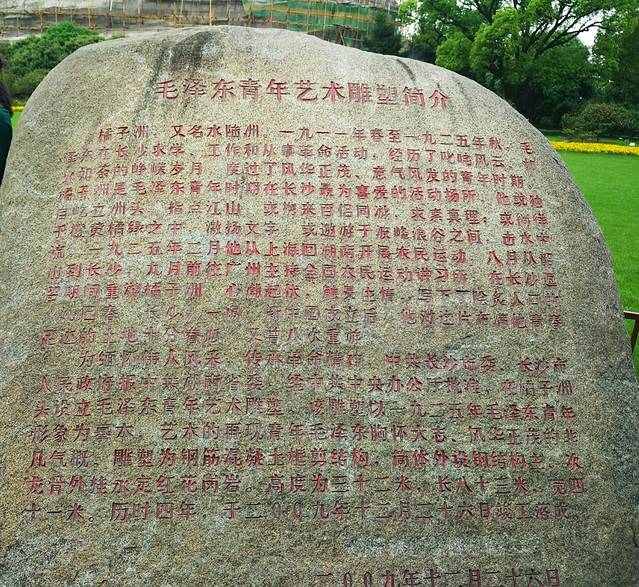 毛泽东青年艺术雕塑简介
橘子洲，又名水陆洲。一九一一年春至一九二五年秋，毛
泽东在长沙求学、工作和从事革命活动，经历了叱咤风云、初
如荼的峥嵘岁月，度过了风华正茂、意气风发的青年时期。
橘子洲是毛泽东青年时期在长沙最为喜爱的活动场所，他或独
自屹立洲头，指点江山；或携来百侣同游，求索真理；或徜徉
于橙黄橘绿之中，激扬文字；或遨游于骇峰浪谷之间，击水中
流。一九二五年二月他从上海回湖南开展农民运动，八月从韶
山到长沙，九月前往广州主持全国农民运动讲习所。在长沙逗
留期间重游橘子洲，心潮起伏，触景生情，写下了脍炙人口的
沁园春 长沙 一词。新中国成立后，他对这片布满他青春
足迹的土地十分眷恋，又曾八次重游
为缅怀伟人风采，传承革命情怀，中共长沙市委、长沙市
人民政府报中共湖南省委，经中共中央办公厅批准，在橘子洲
头设立毛泽东青年艺术雕塑。该雕塑以一九二五年毛泽东青年
形象为基本，艺术的再现青年毛泽东胸怀大志、风华正茂的非
凡气概。雕塑为钢筋混凝土框剪结构，筒体外设钢结构主、次
龙骨外挂永定红花岗岩，高度为三十二米，长八十三米，宽四
十一米。历时四年，于二〇〇九年十二月二十六日竣工落成。
二〇〇九年十二月二十六日